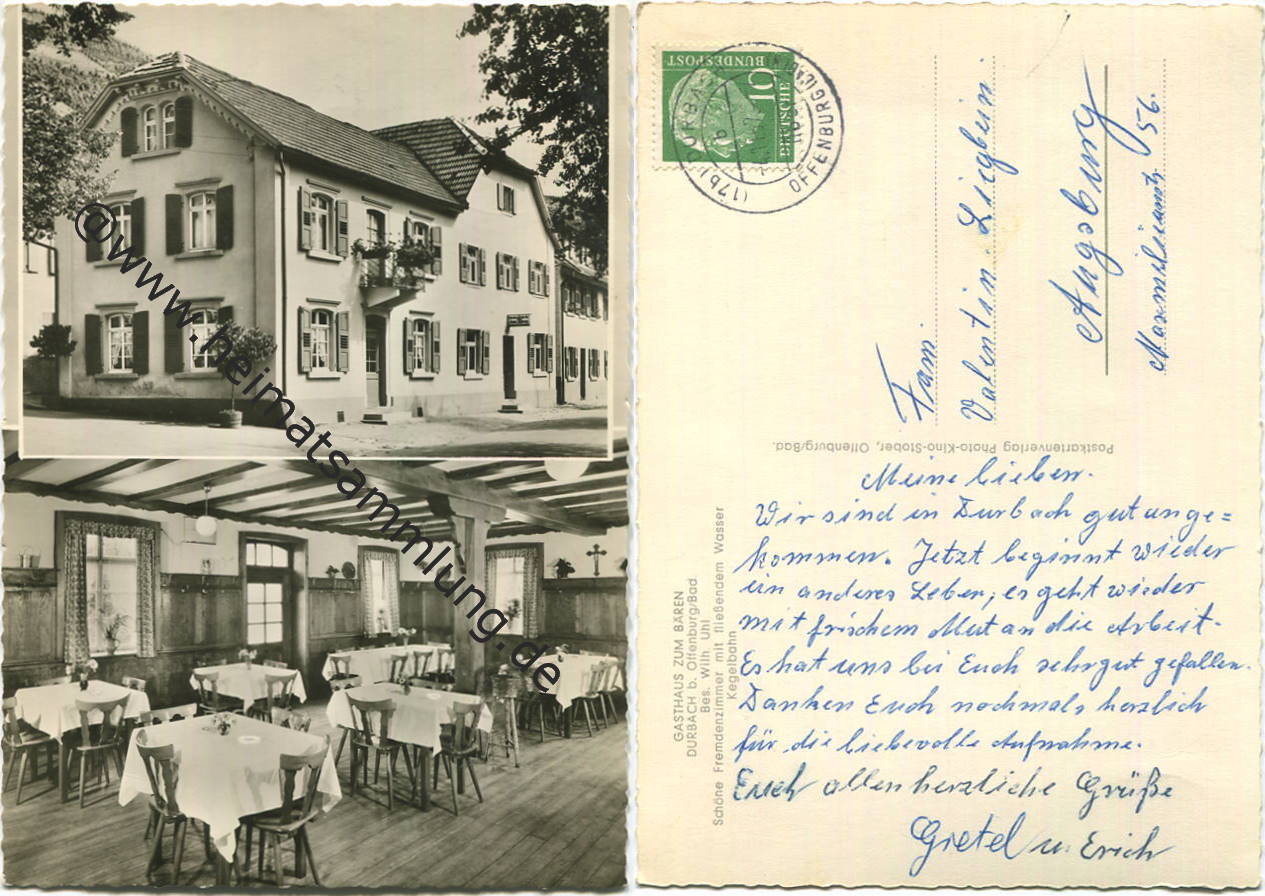 @www.heimatsammlung.de
10
DEUTSCHE
BUNDESPOST
(17b) DURBACH
OFFENBURG
Fam.
Valentin Liegbein.
Augsburg
Maxmilianstr. 56.
Postkartenverlag Photo-Kino-Stober, Offenburg/Bad.
GASTHAUS ZUM BÄREN
DURBACH b. Offenburg/Bad
Bes. Wilh. Uhl
Schöne Fremdenzimmer mit fließendem Wasser
Kegelbahn
Meine lieben.
Wir sind in Durbach gut ange=
kommen. Jetzt beginnt wieder
ein anderes Leben, es geht wieder
mit frischem Mut an die Arbeit.
Es hat uns bei Euch sehr gut gefallen.
Danken Euch nochmals herzlich
für die liebevolle Aufnahme.
Euch allen herzliche Grüße
Gretel u. Erich